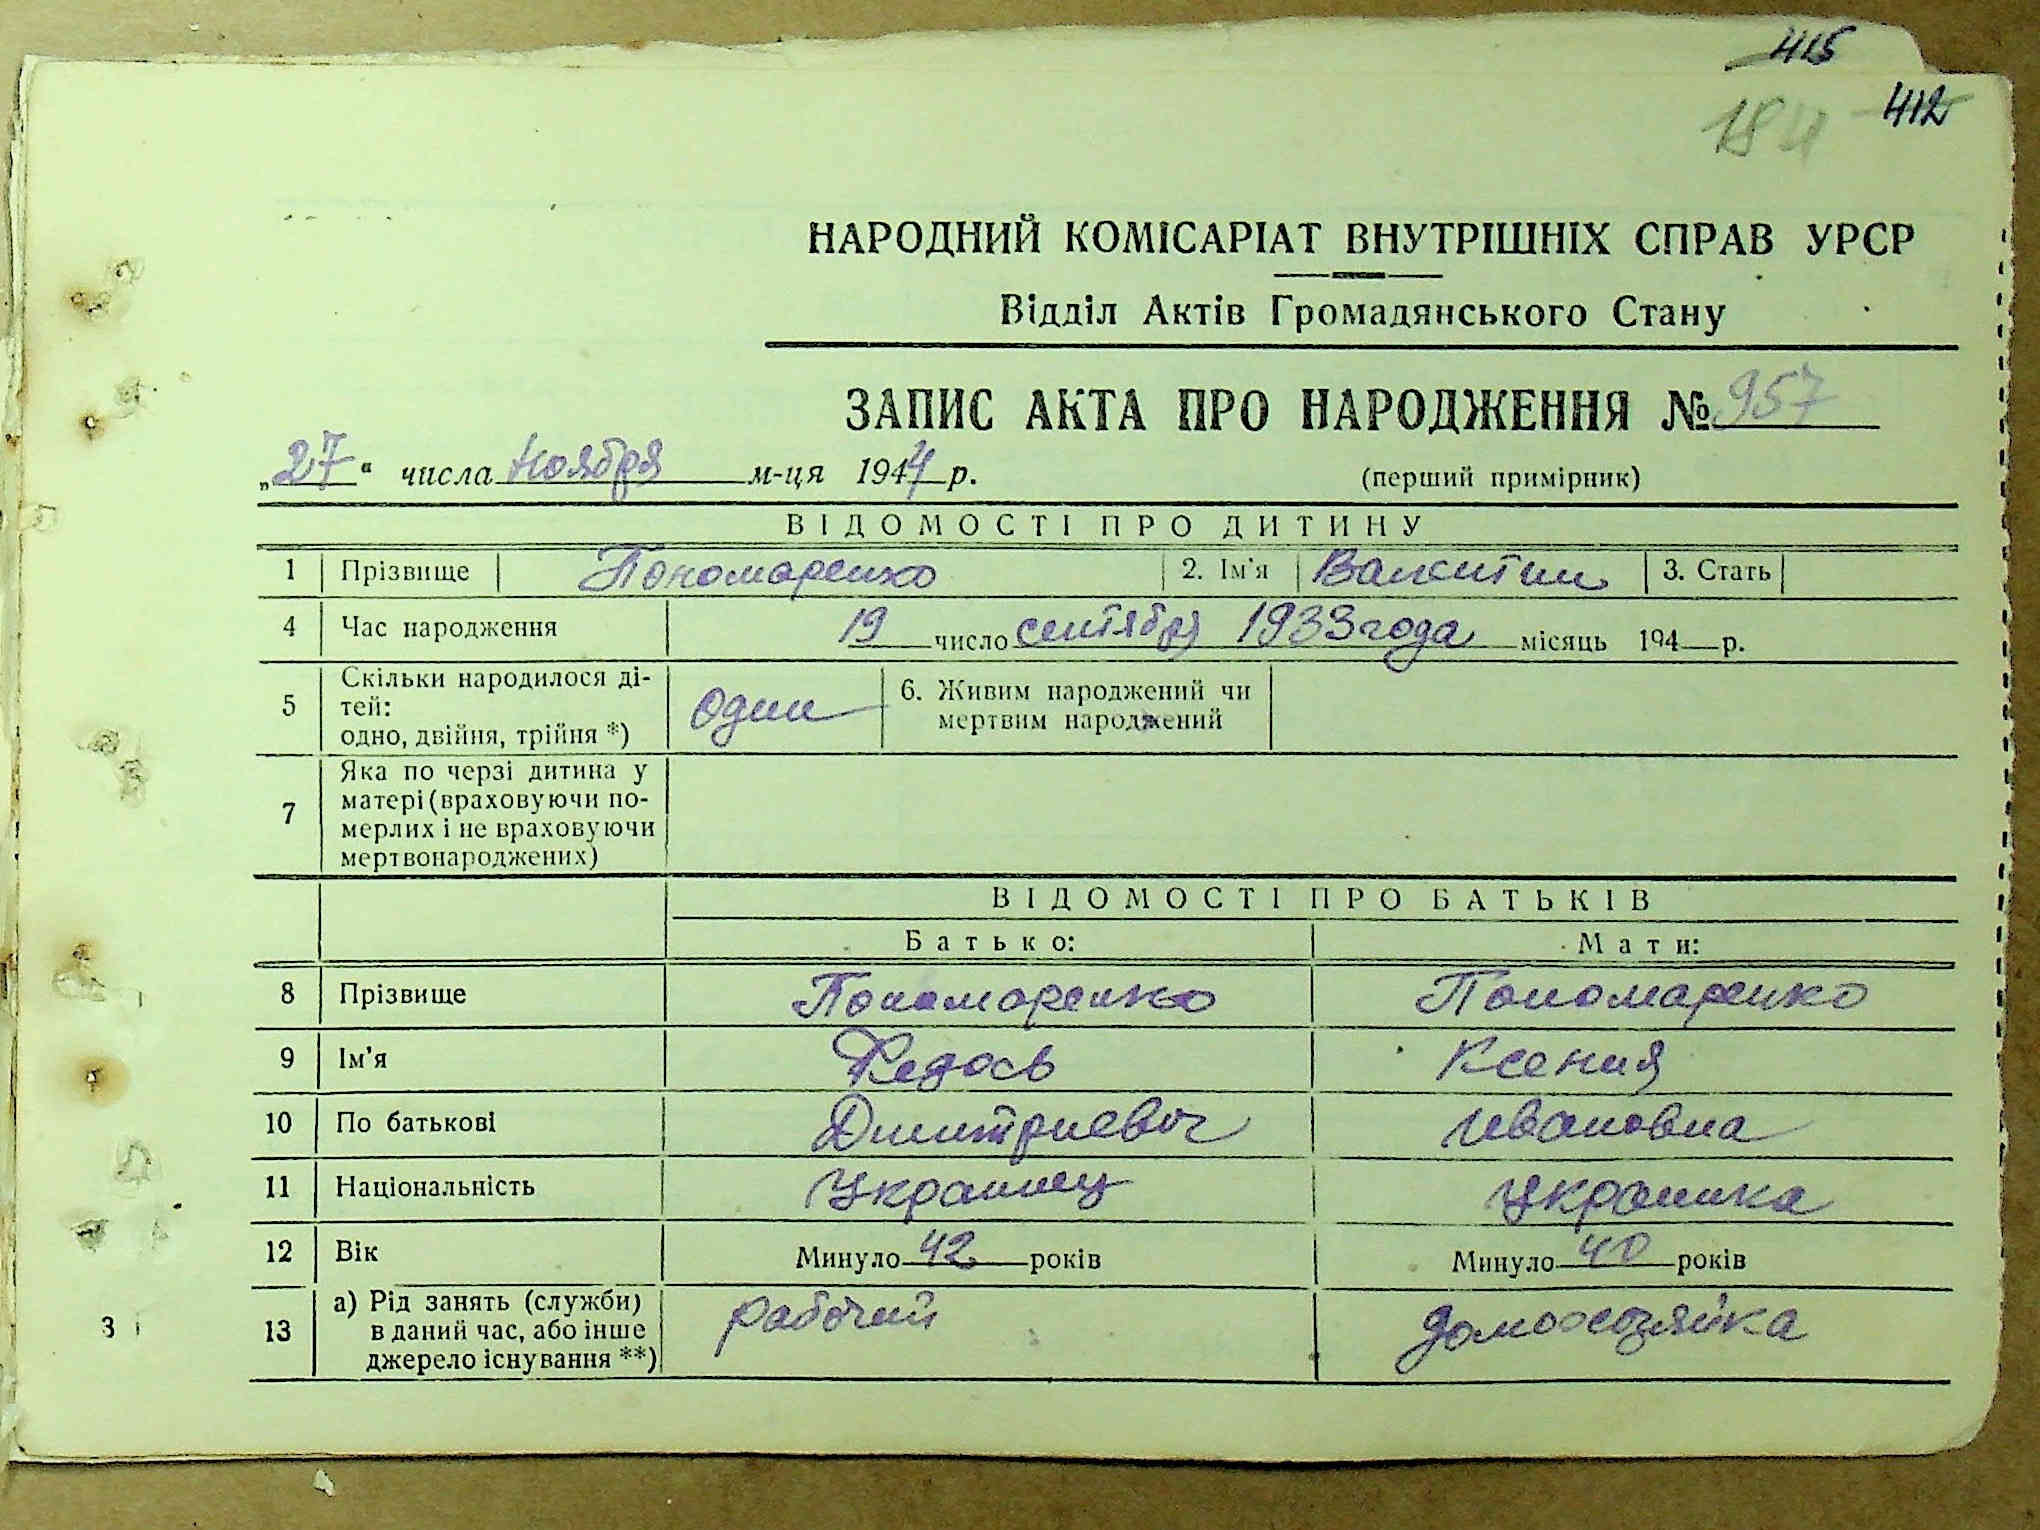 415
412
184
НАРОДНИЙ КОМІСАРІАТ ВНУТРІШНІХ СПРАВ УРСР
Відділ Актів Громадянського Стану
ЗАПИС АКТА ПРО НАРОДЖЕННЯ № 957
„27“ числа ноября м-ця 1944 р. (перший примірник)
ВІДОМОСТІ ПРО ДИТИНУ
1 Прізвище Пономаренко 2. Ім'я Валентин 3. Стать
4 Час народження 19 число сентября 1933 года місяць 194 р.
5 Скільки народилося ді-
тей:
одно, двійня, трійня *) один 6. Живим народжений чи
мертвим народжений
7 Яка по черзі дитина у
матері (враховуючи по-
мерлих і не враховуючи
мертвонароджених)
ВІДОМОСТІ ПРО БАТЬКІВ
Батько: Мати:
8 Прізвище Пономаренко Пономаренко
9 Ім'я Федось Ксения
10 По батькові Дмитриевич Ивановна
11 Національність Украинец Украинка
12 Вік Минуло 42 років Минуло 40 років
13 а) Рід занять (служби)
в даний час, або інше
джерело існування **) рабочий домохозяйка
3